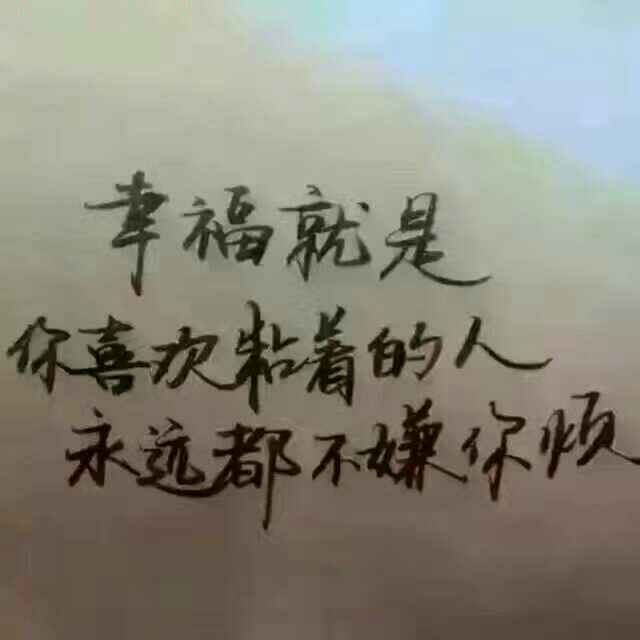 幸福就是
你喜欢粘着的人
永远都不嫌你烦